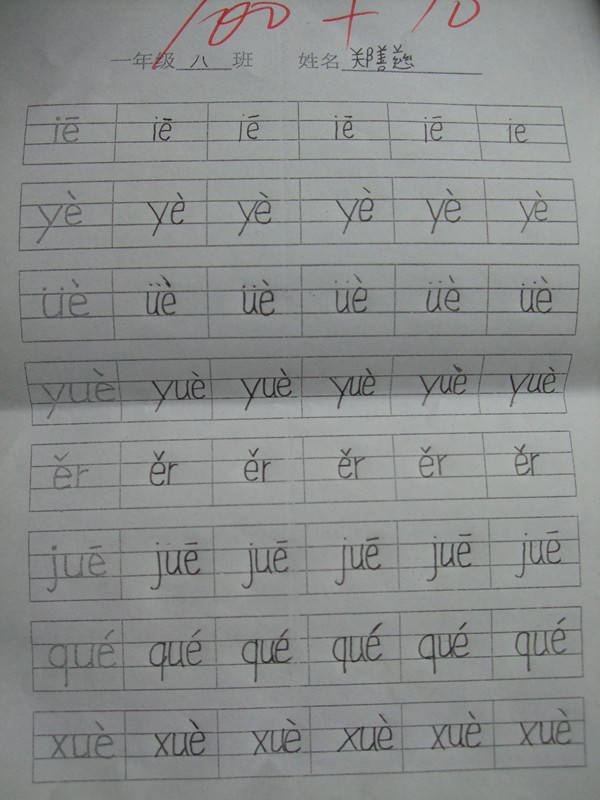 100 + 10
一年级 八 班 姓名 郑善慈
iē iē iē iē iē ie
yè yè yè yè yè yè
üè üè üè üè üè üè
yuè yuè yuè yuè yuè yuè
ěr ěr ěr ěr ěr ěr
juē juē juē juē juē juē
qué qué qué qué qué qué
xuè xuè xuè xuè xuè xuè